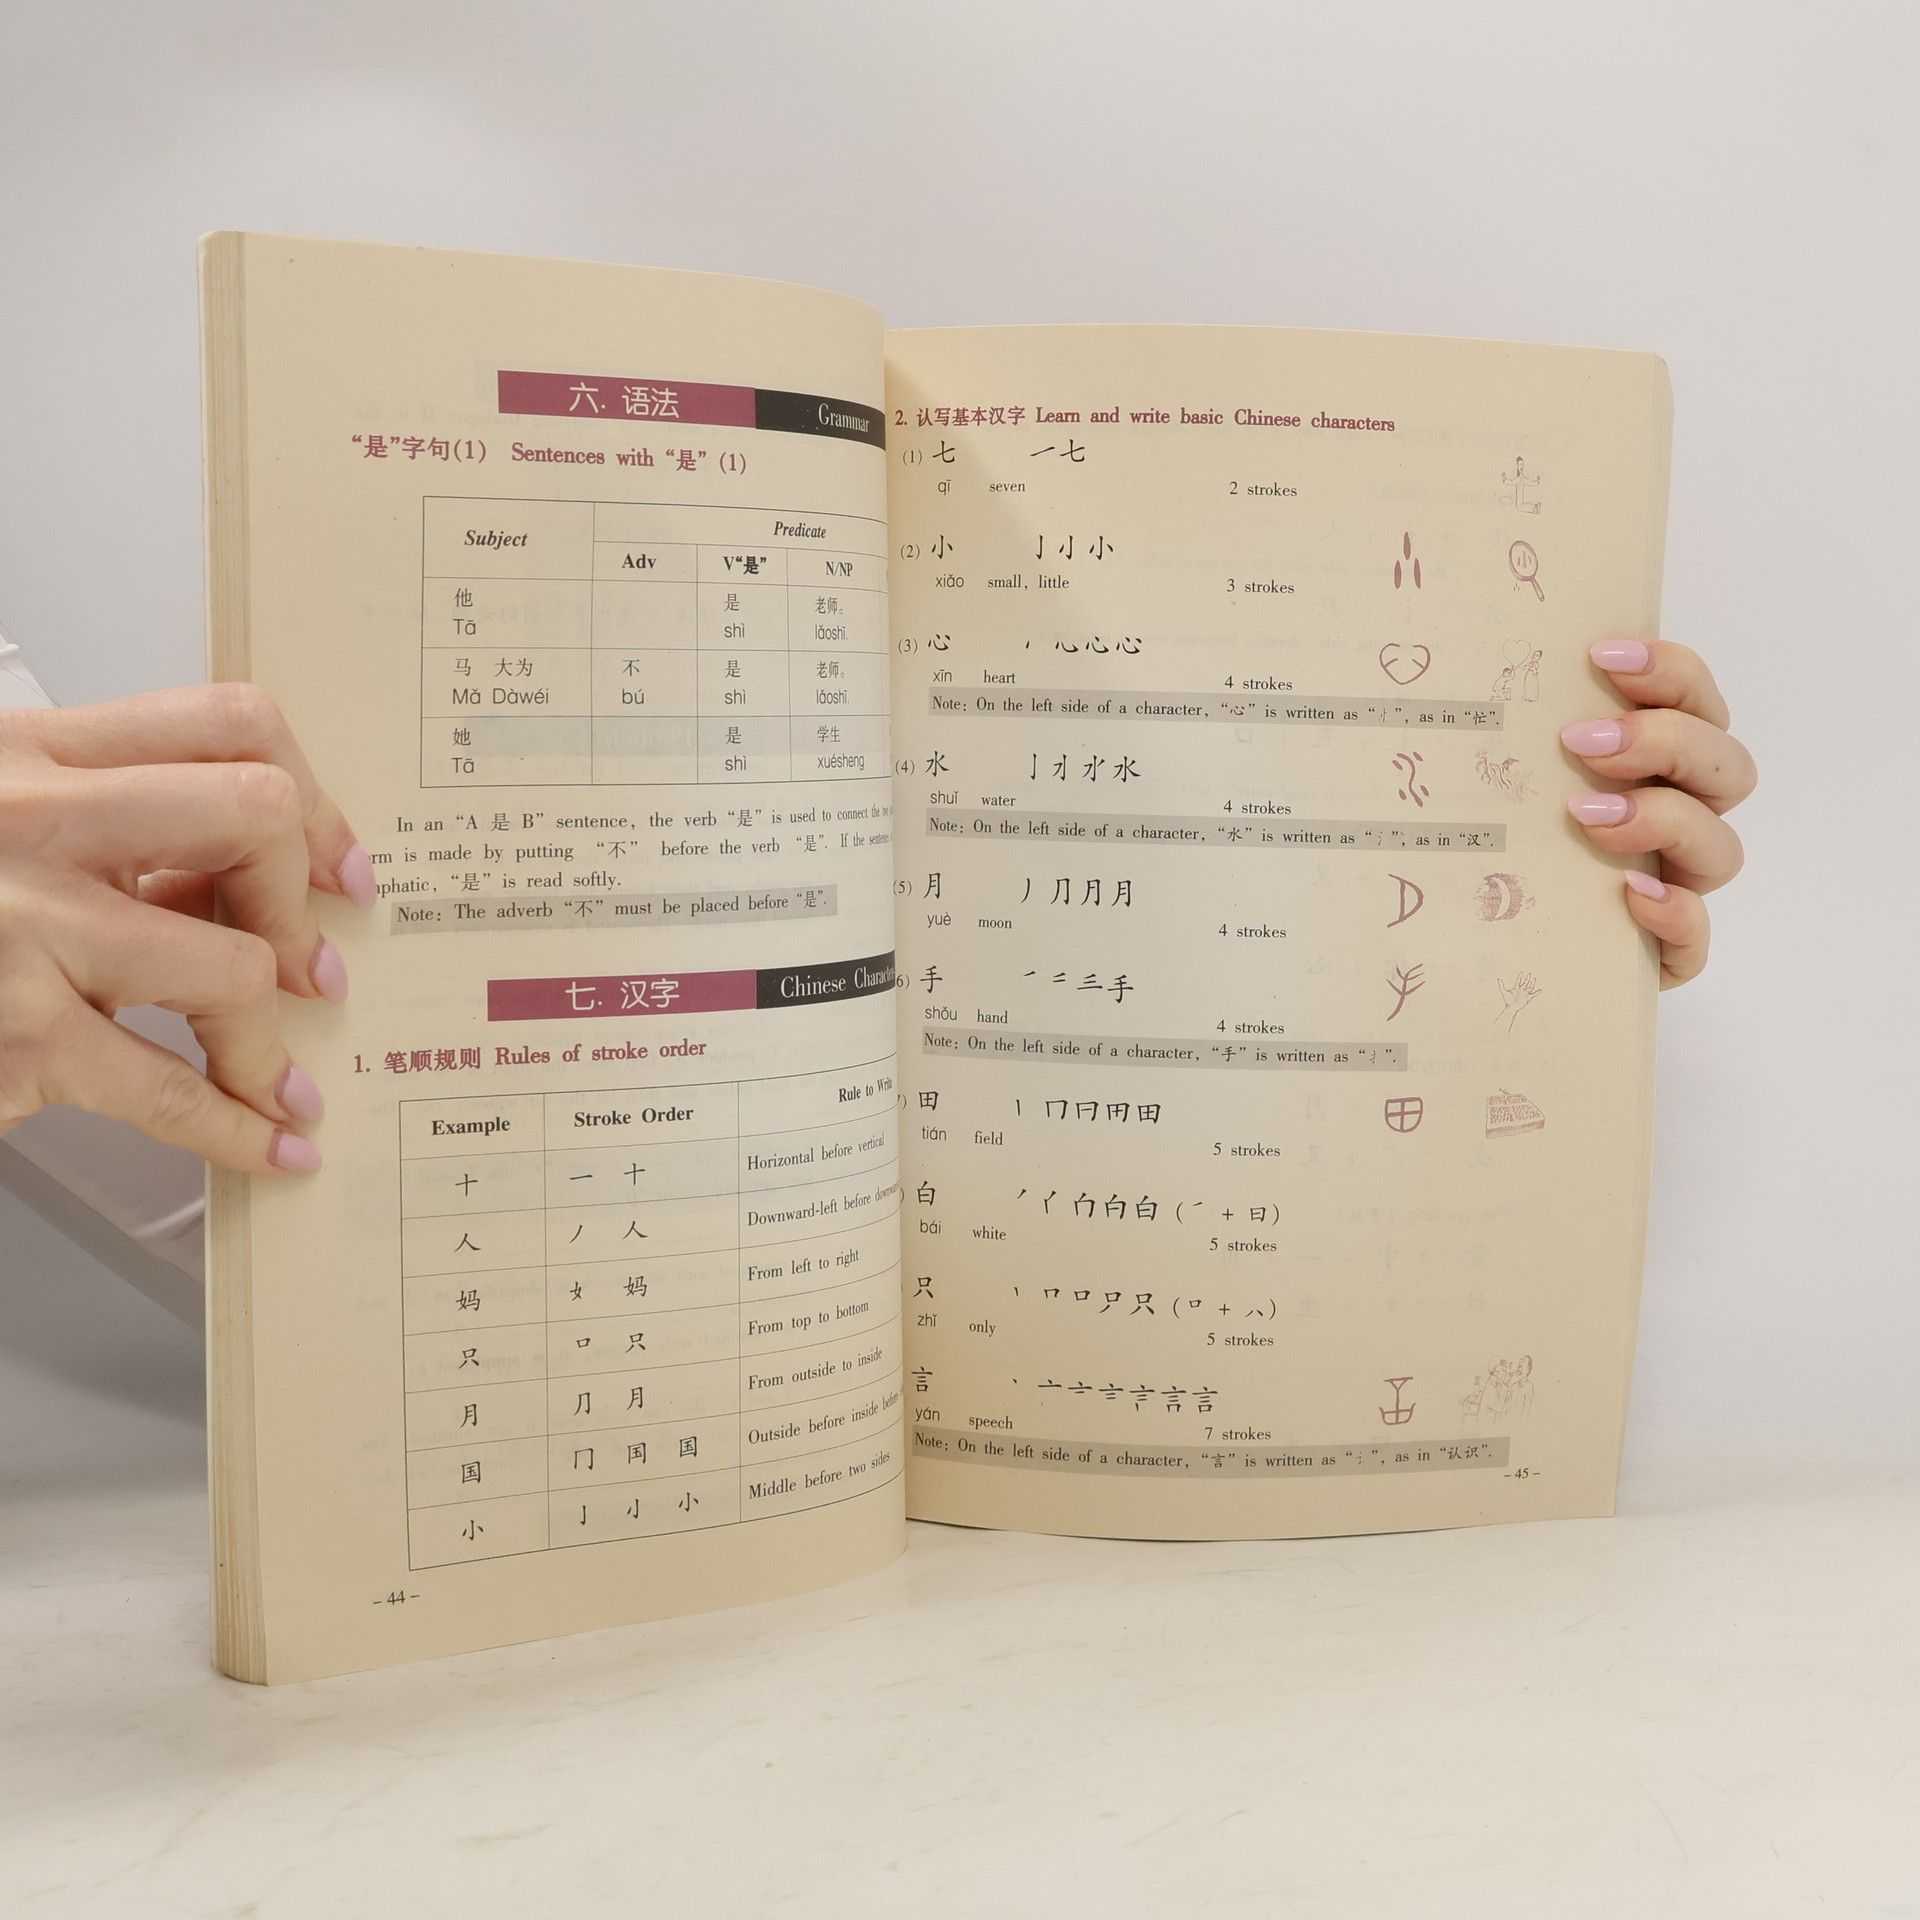 六. 语法 Grammar
“是”字句(1) Sentences with “是” (1)
Subject Predicate
Adv V“是” N/NP
他 是 老师。
Tā shì lǎoshī.
马 大为 不 是 老师。
Mǎ Dàwéi bú shì lǎoshī.
她 是 学生
Tā shì xuésheng
In an “A 是 B” sentence, the verb “是” is used to connect the two
rm is made by putting “不” before the verb “是”. If the sentence
phatic, “是” is read softly.
Note: The adverb “不” must be placed before “是”.
七. 汉字 Chinese Characters
1. 笔顺规则 Rules of stroke order
Example Stroke Order Rule to Write
十 一 十 Horizontal before vertical
人 丿 人 Downward-left before
妈 女 妈 From left to right
只 口 只 From top to bottom
月 ⺆ 月 From outside to inside
国 冂 国 国 Outside before inside before
小 亅 小 小 Middle before two sides
– 44 –
2. 认写基本汉字 Learn and write basic Chinese characters
(1) 七 一 七
qī seven 2 strokes
(2) 小 亅 小 小
xiǎo small, little 3 strokes
小
(3) 心 心 心 心
xīn heart 4 strokes
Note: On the left side of a character, “心” is written as “忄”, as in “忙”.
(4) 水 亅 水
shuǐ water 4 strokes
Note: On the left side of a character, “水” is written as “氵”, as in “汉”.
(5) 月 丿 ⺆ 月 月
yuè moon 4 strokes
6) 手 一 二 三 手
shǒu hand 4 strokes
Note: On the left side of a character, “手” is written as “扌”.
) 田 丨 冂 日 田 田
tián field 5 strokes
) 白 丿 亻 白 白 白 (丿 + 日)
bái white 5 strokes
只 丨 口 口 只 只 (口 + 八)
zhǐ only 5 strokes
言 丶 亠 言 言
yán speech 7 strokes
Note: On the left side of a character, “言” is written as “讠”, as in “认识”.
– 45 –